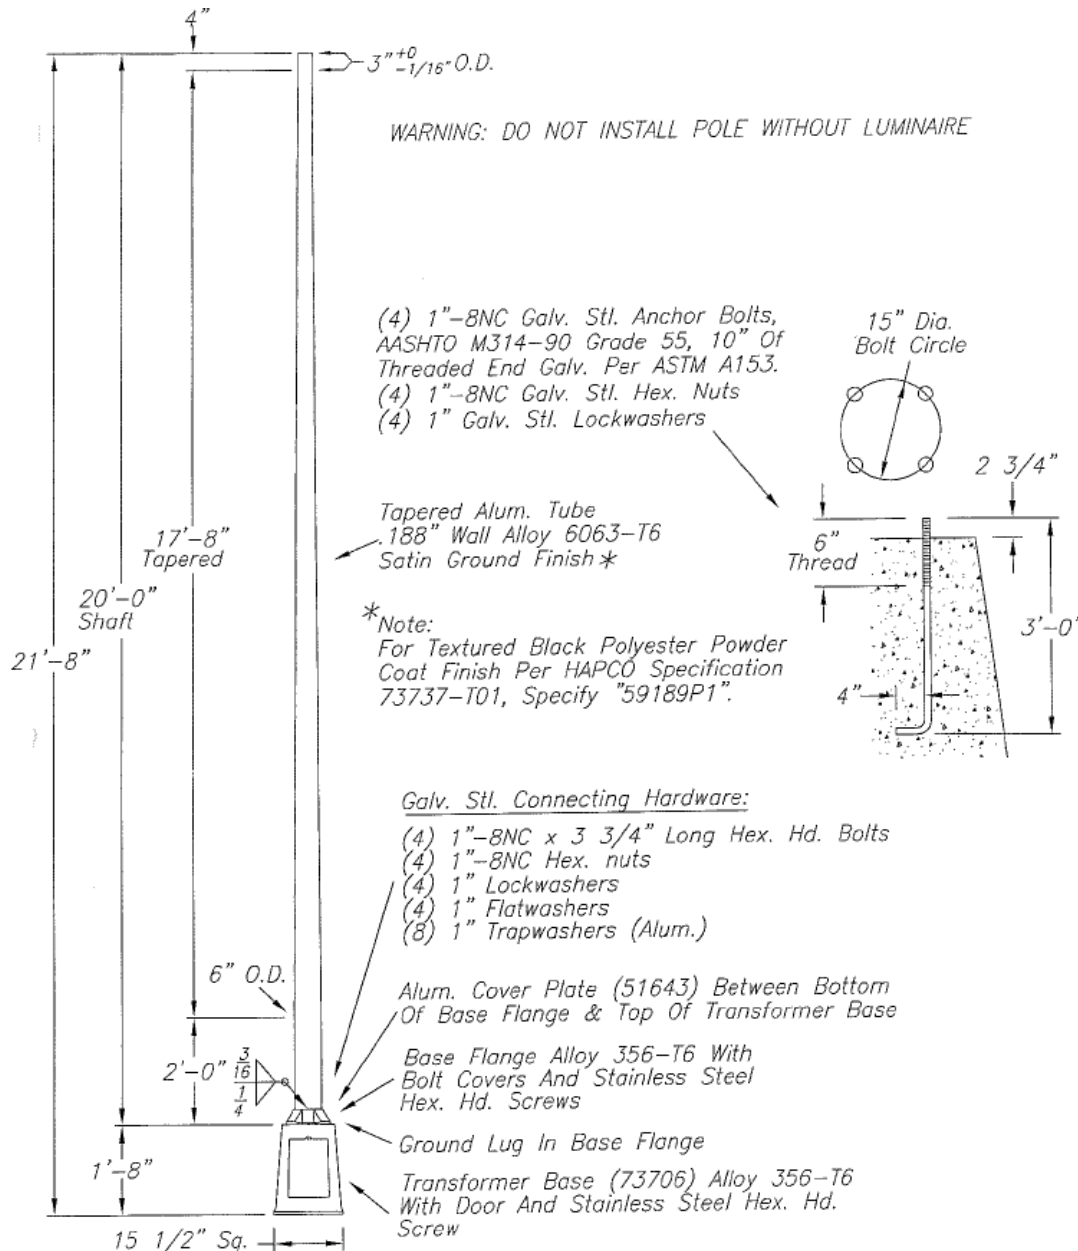 4"
3" +0 -1/16" O.D.
WARNING: DO NOT INSTALL POLE WITHOUT LUMINAIRE
(4) 1"-8NC Galv. Stl. Anchor Bolts,
AASHTO M314-90 Grade 55, 10" Of
Threaded End Galv. Per ASTM A153.
(4) 1"-8NC Galv. Stl. Hex. Nuts
(4) 1" Galv. Stl. Lockwashers
15" Dia.
Bolt Circle
2 3/4"
6"
Thread
3'-0"
4"
17'-8"
Tapered
20'-0"
Shaft
21'-8"
Tapered Alum. Tube
.188" Wall Alloy 6063-T6
Satin Ground Finish *
*Note:
For Textured Black Polyester Powder
Coat Finish Per HAPCO Specification
73737-T01, Specify "59189P1".
Galv. Stl. Connecting Hardware:
(4) 1"-8NC x 3 3/4" Long Hex. Hd. Bolts
(4) 1"-8NC Hex. nuts
(4) 1" Lockwashers
(4) 1" Flatwashers
(8) 1" Trapwashers (Alum.)
6" O.D.
Alum. Cover Plate (51643) Between Bottom
Of Base Flange & Top Of Transformer Base
2'-0"
3/16
1/4
Base Flange Alloy 356-T6 With
Bolt Covers And Stainless Steel
Hex. Hd. Screws
Ground Lug In Base Flange
1'-8"
Transformer Base (73706) Alloy 356-T6
With Door And Stainless Steel Hex. Hd.
Screw
15 1/2" Sq.